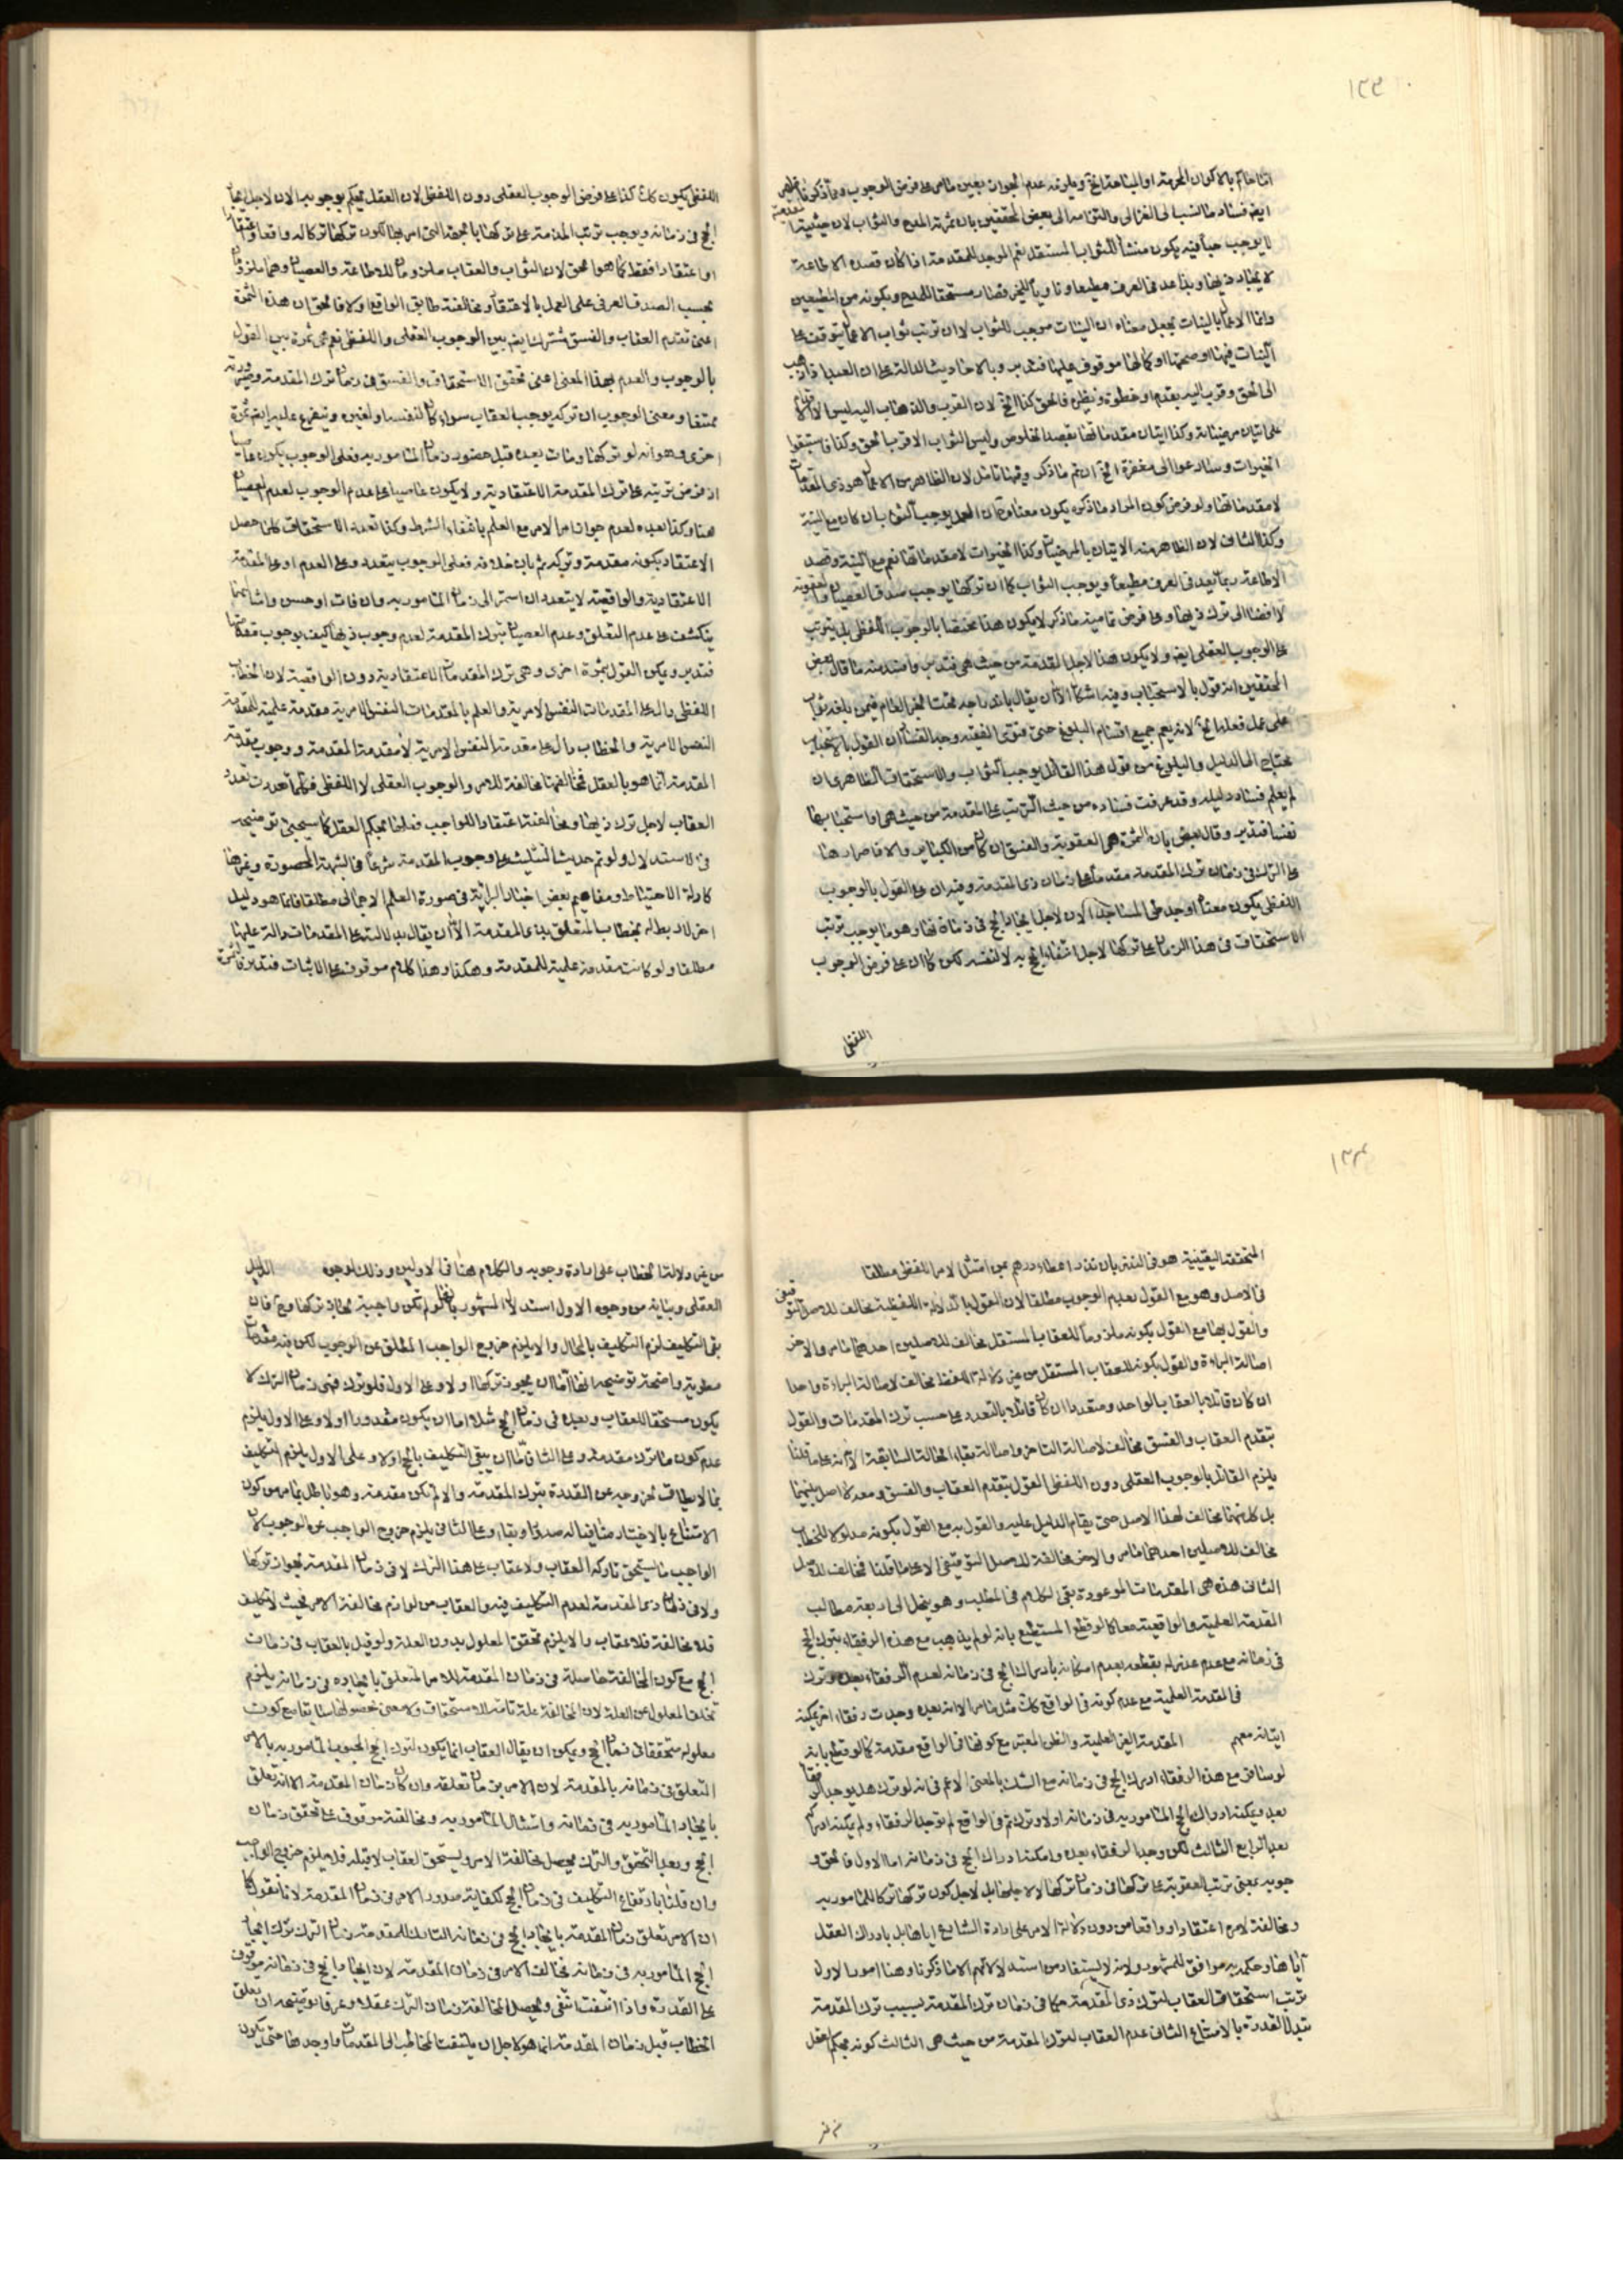 ١٣٣
ايض فساد ما نسب الى الغزالى والتزامه الى بعض المحققين بان ثمرته المدح والثواب لان حيثية المقدمة
لا يوجب حبا فيه يكون منشأ للثواب المستقل نعم الموجد للمقدمة اذا كان قصده الاطاعة
وانما الاعمال بالنيات يجعل معناه ان النيات موجب للثواب لا ان ترتب ثواب الاعمال يتوقف على
النيات فيها او صحتها او كمالها موقوف عليها فتدبر وبالاحاديث الدالة على ان العبد اذا ذهب
الى الحق وقرب اليه بقدم او خطوة ونظيره فالحق كذا الخ لان القرب والذهاب اليه ليس الا
الخيرات وسارعوا الى مغفرة الخ ان تم ما ذكر وفيها تامل لان الظاهر من الاعمال هو ذى المقدمات
وكذا الثانى لان الظاهر منه الاتيان بالمرضيات وكذا الخيرات لا مقدماتها نعم مع النية وقصد
الاطاعة ربما يعد فى العرف مطيعا ويوجب الثواب كما ان تركها يوجب صدق العصيان والعقوبة
لافضائه الى ترك ذيها وعلى فرض تمامية ما ذكر لا يكون هذا مختصا بالوجوب اللفظى بل يترتب
على الوجوب العقلى ايض ولا يكون هذا لاجل المقدمة من حيث هى فتدبر وافسد منه ما قال بعض
المحققين انه قول بالاستحباب وفيه اشكال الا ان يقال باندراجه تحت الخبر العام فيمن بلغه ثواب
على عمل ففعله الخ لانه يعم جميع اقسام البلوغ حتى فتوى الفقيه وجه الفساد ان القول بالاستحباب
يحتاج الى الدليل والبلوغ من قول هذا القائل يوجب الثواب والاستحقاق الظاهرى ان
لم يعلم فساد دليله وقد عرفت فساده من حيث الترتب على المقدمة من حيث هى او استحبابها
نفسا فتدبر وقال بعض بان الثمرة هى العقوبة والفسق ان كان من الكبائر والا فاصرار هنا
على الترك فى زمان ترك المقدمة مقدما على زمان ذى المقدمة وفيه ان على القول بالوجوب
الاستحقاق فى هذا الزمان على تركها لاجل انتفاء الحج به لا لنفسه لكن كما ان على فرض الوجوب
اللفظى
اللفظى يكون كك كذا على فرض الوجوب العقلى دون اللفظى لان العقل يحكم بوجوبه الان لاجل ايجاد
الحج فى زمانه ويوجب ترتب المذمة على تركها بالجهة التى امر بها لكون تركها تركا له واقعا واعتقادا
او اعتقادا فقط كما هو الحق لان الثواب والعقاب ملزومان للاطاعة والعصيان وهما ملزومان
بحسب الصدق العرفى على العمل بالاعتقاد ومخالفته طابق الواقع اولا فالحق ان هذه الثمرة
اعنى تقدم العقاب والفسق مشترك ايض بين الوجوب العقلى واللفظى نعم هى ثمرة بين القول
بالوجوب والعدم بهذا المعنى اعنى تحقق الاستحقاق والفسق فى زمان ترك المقدمة وصيرورته
ممتنعا ومعنى الوجوب ان تركه يوجب العقاب سواء كان لنفسه او لغيره ويتفرع عليه ايض ثمرة
اخرى وهو انه لو تركها ومات بعده قبل حضور زمان المأمور به فعلى الوجوب يكون عاصيا
اذ فرض ترتبه على ترك المقدمة الاعتقادية ولا يكون عاصيا على عدم الوجوب لعدم العصيان
هنا وكذا بعده لعدم جواز امر الامر مع العلم بانتفاء الشرط وكذا تعدد الاستحقاق كلما حصل
الاعتقاد بكونه مقدمة وتركه ثم بان خلافه فعلى الوجوب يتعدد وعلى العدم او على المقدمة
الاعتقادية والواقعية لا يتعدد ان استمر الى زمان المأمور به وان فات او حسن وامثالهما
ينكشف على عدم التعلق وعدم العصيان بترك المقدمة لعدم وجوب ذيها كيف بوجوب مقدماتها
فتدبر ويمكن القول بثمرة اخرى وهى ترك المقدمات الاعتقادية دون الواقعية لان الخطاب
اللفظى دال على المقدمات النفس الامرية والعلم بالمقدمات النفس الامرية مقدمة علمية للمقدمة
النفس الامرية والخطاب دال على مقدمة النفس الامرية لا مقدمة المقدمة ووجوب مقدمة
المقدمة انما هو بالعقل فمخالفتها مخالفة للامر والوجوب العقلى لا اللفظى فكلما تعددت تعدد
العقاب لاجل ترك ذيها ومخالفة اعتقاد الواجب فيها بحكم العقل كما سيجيئ توضيحه
فى الاستدلال ولو تم حديث التثليث على وجوب المقدمة شرعا فى الشبهة المحصورة وغيرها
كادلة الاحتياط ومفاهيم بعض اخبار البرائة فى صورة العلم الاجمالى مطلقا فانما هو دليل
اخر لا ربط له بخطاب المتعلق بذى المقدمة الا ان يقال بدلالته على المقدمات دلالة عليها
مطلقا ولو كانت مقدمة علمية للمقدمة وهكذا وهذا كلام موقوف على الاثبات فتدبر
١٣٤
المتحققة اليقينية هو فى النذر بان نذر اعطاء درهم بمن امتثل الامر اللفظى مطلقا
فى الاصل وهو مع القول بعدم الوجوب مطلقا لان القول بالدلالة اللفظية مخالف للاصل التوقيفى
والقول بها مع القول بكونه ملزوما للعقاب المستقل مخالف للاصلين احدهما ما مر والاخر
اصالة البراءة والقول بكونه للعقاب المستقل من غير دلالة اللفظ مخالف لاصالة البراءة واحدا
ان كان قائلا بالعقاب الواحد ومتعددا ان كان قائلا بالتعدد على حسب ترك المقدمات والقول
بتقدم العقاب والفسق مخالف لاصالة التاخر واصالة بقاء الحالة السابقة الا انه على ما قلنا
يلزم القائل بالوجوب العقلى دون اللفظى القول بتقدم العقاب والفسق ومعه لا اصل بينهما
بل كلاهما مخالف لهذا الاصل حتى يقام الدليل عليه والقول به مع القول بكونه مدلولا للخطاب
مخالف للاصلين احدهما ما مر والاخر مخالفة للاصل التوقيفى الا على ما قلنا فمخالف للاصل
الثانى هذه هى المقدمات الموعودة بقى الكلام فى المطلب وهو ينحل الى اربعة مطالب
المقدمة العلمية والواقعية معا كما لو قطع المستطيع بانه لو لم يذهب مع هذه الرفقاء يترك الحج
فى زمانه مع عدم عذر له بقطعه بعدم امكانه بادراك الحج فى زمانه لعدم الرفقاء بعده وترك
فى المقدمة العلمية مع عدم كونه فى الواقع كك مثل ما مر الا انه بعده وجدت رفقاء اخر يمكنه
اتيانه معهم المقدمة الغير العلمية والظن المعتبر مع كونها فى الواقع مقدمة كما لو قطع بانه
لو سافر مع هذه الرفقاء ادرك الحج فى زمانه مع الشك بالمعنى الاعم فى انه لو ترك هل يوجد الرفقاء
بعد ويمكنه ادراك الحج المأمور به فى زمانه اولا وترك ثم فى الواقع لم توجد الرفقاء ولم يمكنه ادراكه
بعد الرابع الثالث لكن وجد الرفقاء بعده وامكنه ادراك الحج فى زمانه اما الاول فالحق و
جوبه بمعنى ترتب العقوبة على تركها فى زمان تركها لا لاجلها بل لاجل كون تركها تركا للمأمور به
ومخالفة لامره اعتقادا وواقعا من دون دلالة الامر على ارادة الشارع اياها بل بادراك العقل
اياها وحكمه به موافق للمشهور ولانه لا يستفاد من استدلالاتهم الا ما ذكرنا وهنا امور الاول
ترتب استحقاق العقاب لترك ذى المقدمة حكما فى زمان ترك المقدمة بسبب ترك المقدمة
تبدل القدرة بالامتناع الثانى عدم العقاب لترك المقدمة من حيث هى الثالث كونه بحكم العقل
من غير
من غير دلالة الخطاب على ارادة وجوبه والكلام هنا فى الاولين وذلك لوجوه الدليل
العقلى وبيانه من وجوه الاول استدلال المشهور بانها لو لم تكن واجبة لجاز تركها وح فان
بقى التكليف لزم التكليف بالمحال والا يلزم خروج الواجب المطلق عن الوجوب لكن فيه مقدمات
مطوية واضحة توضيحه انها اما ان يجوز تركها اولا وعلى الاول فلو ترك ففى زمان الترك لا
يكون مستحقا للعقاب وبعده فى زمان الحج مثلا اما ان يكون مقدورا اولا وعلى الاول يلزم
عدم كون ما ترك مقدمة وعلى الثانى فاما ان يبقى التكليف بالحج اولا وعلى الاول يلزم التكليف
بما لا يطاق لخروجه عن القدرة بترك المقدمة والا لم تكن مقدمة وهو باطل بما مر من كون
الامتناع بالاختيار منافيا له صدقا وبقاء وعلى الثانى يلزم خروج الواجب عن الوجوب لان
الواجب ما يستحق تاركه العقاب ولا عقاب على هذا الترك لا فى زمان المقدمة لجواز تركها
ولا فى زمان ذى المقدمة لعدم التكليف فيه والعقاب من لوازم مخالفة الامر فحيث لا تكليف
فلا مخالفة فلا عقاب والا يلزم تحقق المعلول بدون العلة ولو قيل بالعقاب فى زمان
الحج مع كون المخالفة حاصلة فى زمان المقدمة للامر المتعلق بايجاده فى زمانه يلزم
تخلف المعلول عن العلة لان المخالفة علة تامة للاستحقاق ولا معنى لحصولها سابقا مع كون
معلوله متحققا فى زمان الحج ويمكن ان يقال العقاب انما يكون لترك الحج المحبوب المأمور به بالامر
المتعلق فى زمانه بالمقدمة لان الامر بزمان تعلقه وان كان زمان المقدمة الا انه تعلق
بايجاد المأمور به فى زمانه وامتثال المأمور به ومخالفته موقوف على تحقق زمان
الحج وبعد التحقق والترك يحصل مخالفة الامر ويستحق العقاب لا قبله فلا يلزم خروج الواجب
وان قلنا بارتفاع التكليف فى زمان الحج لكفاية صدور الامر فى زمان المقدمة لانا نقول
ان الامر تعلق زمان المقدمة بايجاد الحج فى زمانه التارك للمقدمة زمان الترك ترك ايجاد
الحج المأمور به فى زمانه مخالف الامر فى زمان المقدمة لان ايجاد الحج فى زمانه موقوف
على القدرة واذا انتفت انتفى ويحصل المخالفة زمان الترك عقلا وعرفا توضيحه ان تعلق
الخطاب قبل زمان المقدمة انما هو لاجل ان يلتفت المخاطب الى المقدمات واوجدها حتى يكون